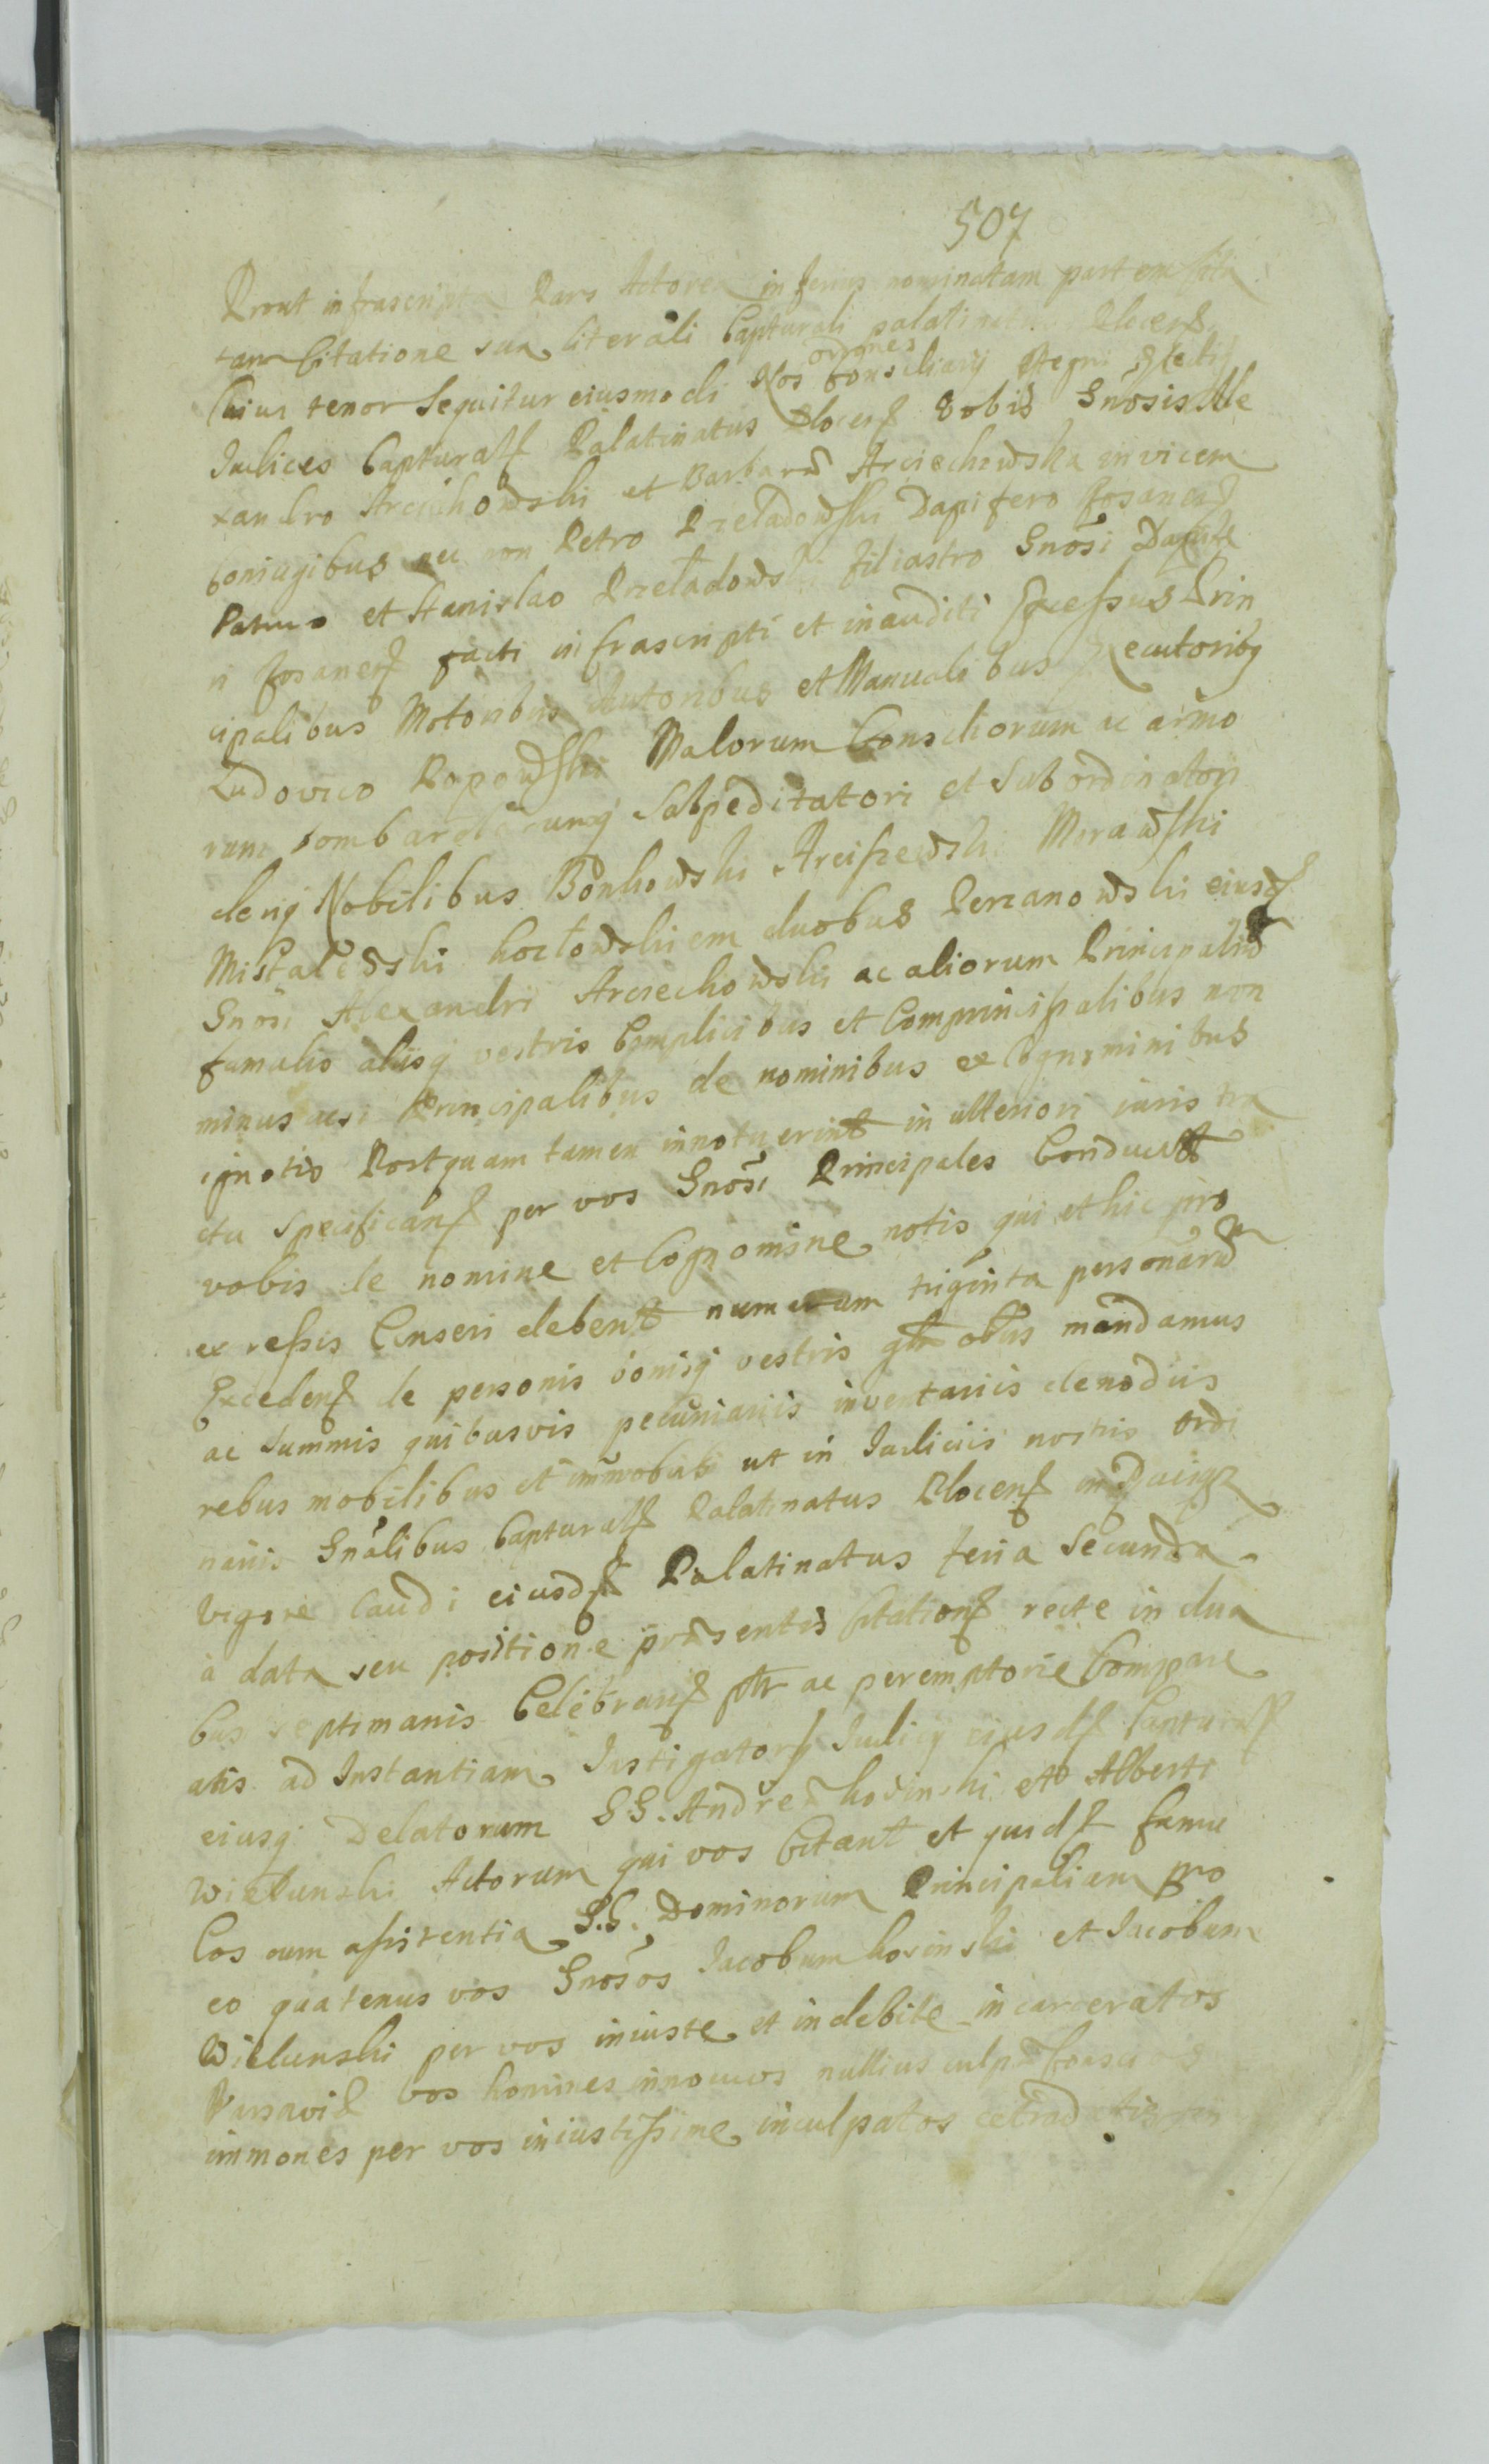 507
Prout infrascripta Pars Actorea inferius nominatam partem Cita
tam Citatione sua literali Capturali palatinatus Plocens
Cuius tenor Sequitur eiusmodi Nos Consiliarij Regni Electi
omnes
Judices Capturales Palatinatus Plocens Vobis Gnosis Ale
xandro Arciechowski et Barbara Arciechowska invicem
Coniugibus nec non Petro Przeładowski Dapifero Rosanens
Patruo et Stanislao Przeładowski filiastro Gnosi Dapife
ri Rosanens facti infrascripti et inauditi Excessus Prin
cipalibus Motoribus Autoribus et Manualibus Executoribq
Ludovico Popowski Malorum Consiliorum ac armo
rum bombardarumq Subpeditatori et Subordinatori
deniq Nobilibus Bońkowski Arciszewski Morawski
Miszalewski Kozłowskiem duobus Perzanowski eiusd
Gnosi Alexandri Arciechowski ac aliorum Principaliu
famulis aliisq vestris Complicibus et Comprincipalibus non
minus ac si Principalibus de nominibus et Cognominibus
ignotis Postquam tamen innotuerint in ulteriori iuris tra
ctu Specificans per vos Gnosi Principales Conductt
vobis de nomine et Cognomine notis qui et hic pro
expressis Censeri debent numerum triginta personaru
Excedens de personis bonisq vestris gntr obus mandamus
ac Summis quibusvis pecuniariis inventariis denodiis
rebus mobilibus et immobibi ut in Judiciis nostris Ordi
nariis Gnalibus Capturals Palatinatus Plocens in Raciąz
Vigore Laudi eiusd Palatinatus feria Secunda
à data seu positione prasentis Citations recte in dua
bus septimanis Celebrans ptr ac peremptorie Compare
atis ad Instantiam Instigatoris Judicij eiusd Capturals
eiusq Delatorum GG. Andrea Kosinski et Alberti
Wielunski Actorum qui vos Citant et quid famu
los cum assistentia G.G. Dominorum Principalium pro
eo quatenus vos Gnosos Jacobum Kosinski et Jacobum
Wielunski per vos iniuste et indebite incarceratos
Varsavia vos homines innocuos nullius culpa Conscios
immones per vos iniustissime inculpatos